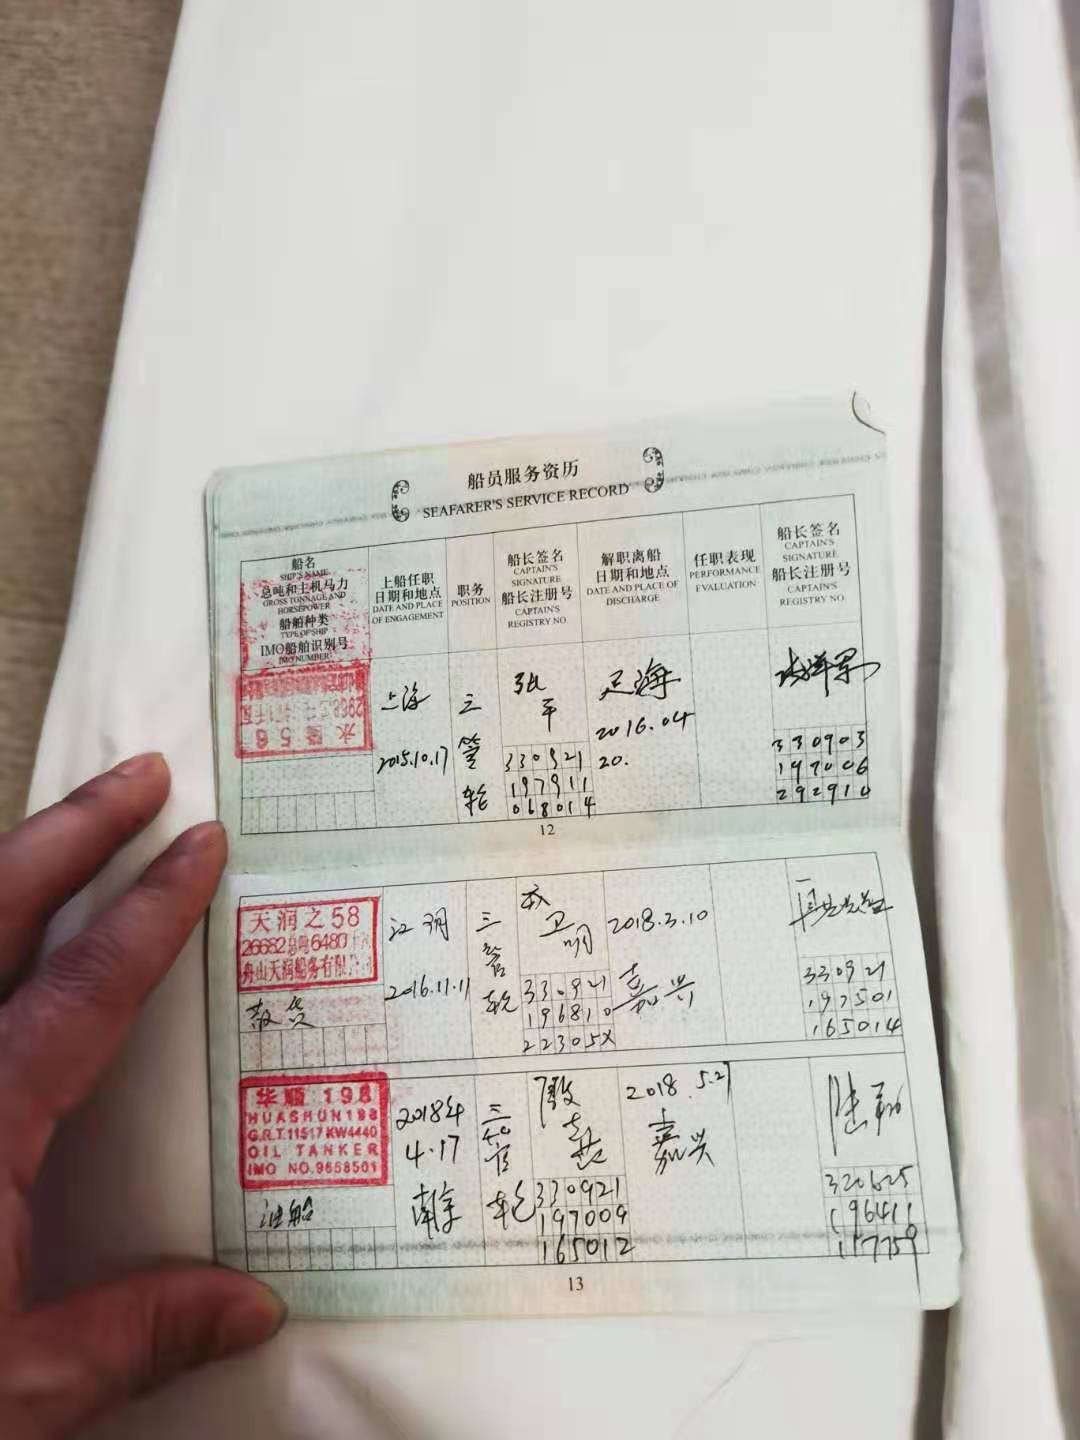 船员服务资历
SEAFARER'S SERVICE RECORD
船名
SHIP'S NAME
总吨和主机马力
GROSS TONNAGE AND
HORSEPOWER
船舶种类
TYPE OF SHIP
IMO船舶识别号
IMO NUMBER
上船任职
日期和地点
DATE AND PLACE
OF ENGAGEMENT
职务
POSITION
船长签名
CAPTAIN'S
SIGNATURE
船长注册号
CAPTAIN'S
REGISTRY NO.
解职离船
日期和地点
DATE AND PLACE OF
DISCHARGE
任职表现
PERFORMANCE
EVALUATION
船长签名
CAPTAIN'S
SIGNATURE
船长注册号
CAPTAIN'S
REGISTRY NO.
永隆56
上海
2015.10.17
三
管
轮
张
平
330921
197911
068014
2016.04
20.
330903
197006
292910
12
天润之58
26682总吨6480千瓦
舟山天润船务有限公司
散货
2016.11.11
三
管
轮
卫
明
330921
196810
22305X
2018.3.10
嘉兴
330921
197501
165014
华顺 198
HUASHUN198
G.R.T.11517 KW4440
OIL TANKER
IMO NO.9658501
油船
2018年
4.17
南京
三
管
轮
330921
197009
165012
2018.5.27
嘉兴
320625
196411
117759
13